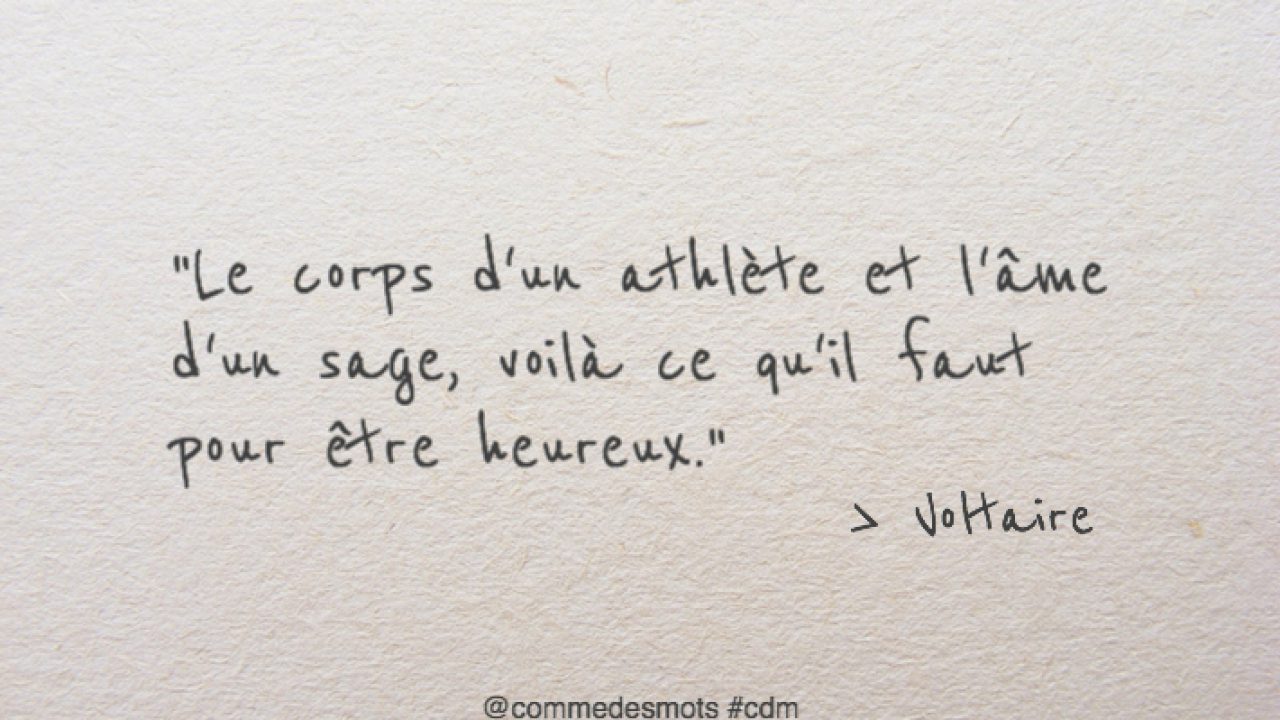 "Le corps d'un athlète et l'âme
d'un sage, voilà ce qu'il faut
pour être heureux."
> Voltaire
@commedesmots #cdm